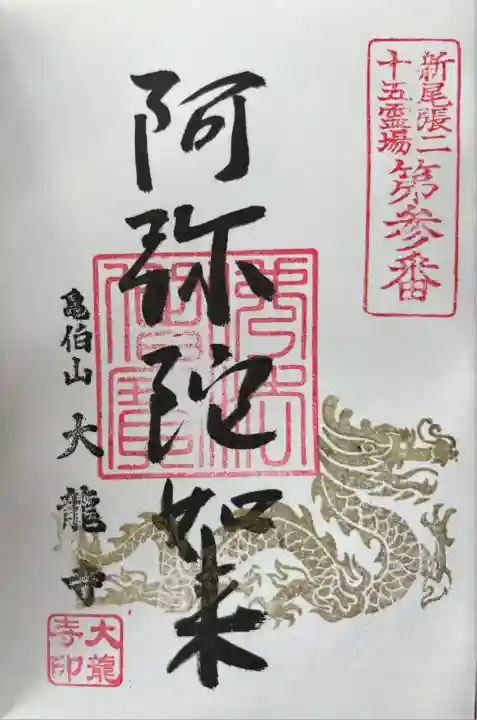 新尾張二
十五霊場
第参番
阿弥陀如来
亀伯山 大龍寺
大龍
寺印